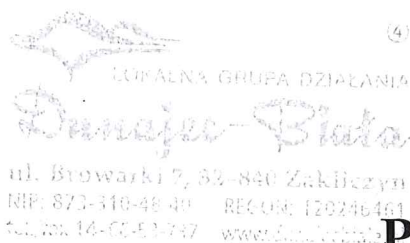 ④
LOKALNA GRUPA DZIAŁANIA
Dunajec-Biała
ul. Browarki 7, 32-840 Zakliczyn
NIP: 873-310-48-40 REGON: 120246461
P